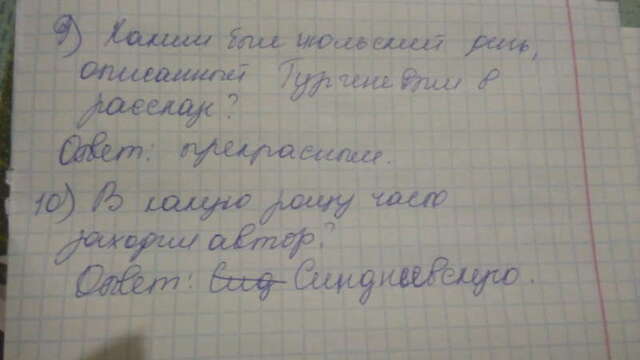 9) Каким был июльский день,
описанный Тургеневым в
рассказе?
Ответ: прекрасным.
10) В какую рощу часто
заходил автор?
Ответ: Сид Синднеевскую.